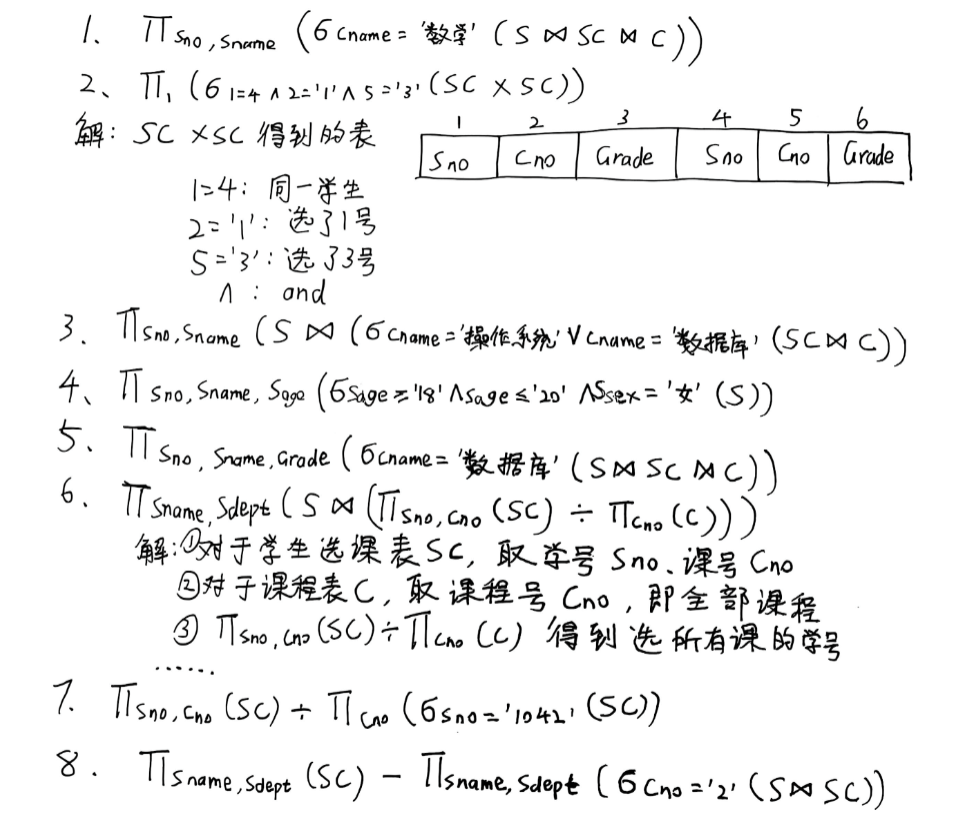 1、 Π Sno,Sname (б Cname='数学' (S ⋈ SC ⋈ C))
2、 Π1 (б 1=4 ∧ 2='1' ∧ 5='3' (SC × SC))
解: SC × SC 得到的表
1 2 3 4 5 6
Sno Cno Grade Sno Cno Grade
1=4: 同一学生
2='1': 选了1号
5='3': 选了3号
∧ : and
3、 Π Sno,Sname (S ⋈ (б Cname='操作系统' ∨ Cname='数据库' (SC ⋈ C))
4、 Π Sno,Sname,Sage (б Sage≥'18' ∧ Sage≤'20' ∧ Ssex='女' (S))
5、 Π Sno,Sname,Grade (б Cname='数据库' (S ⋈ SC ⋈ C))
6、 Π Sname,Sdept (S ⋈ (Π Sno,Cno (SC) ÷ Π Cno (C)))
解:①对于学生选课表SC, 取学号Sno、课号Cno
②对于课程表C, 取课程号Cno, 即全部课程
③ Π Sno,Cno (SC) ÷ Π Cno (C) 得到选所有课的学号
......
7. Π Sno,Cno (SC) ÷ Π Cno (б Sno='1042' (SC))
8. Π Sname,Sdept (SC) − Π Sname,Sdept (б Cno='2' (S ⋈ SC))